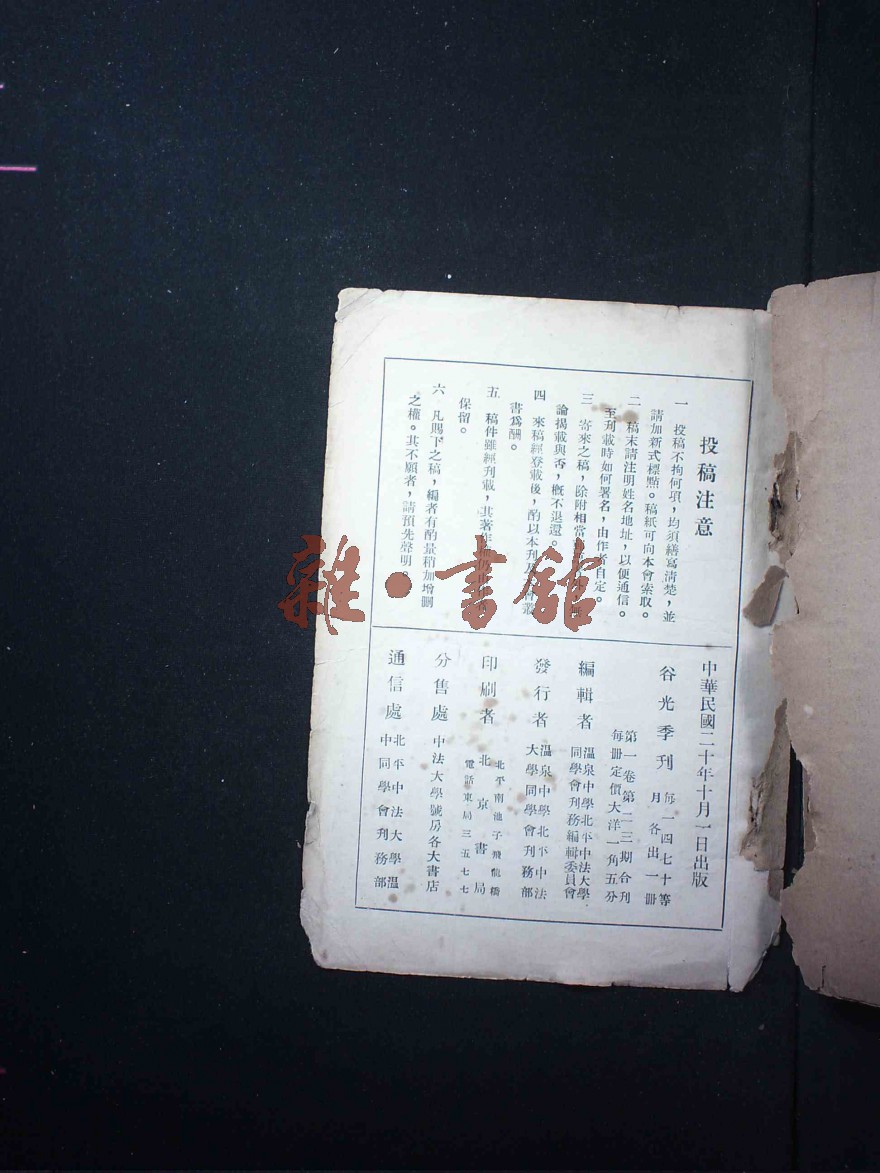 投稿注意
一　投稿不拘何項，均須繕寫清楚，並
請加新式標點。稿紙可向本會索取。
二　稿末請注明姓名地址，以便通信。
至刊載時如何署名，由作者自定。
三　寄來之稿，除附相當
論揭載與否，概不退還。
四　來稿經登載後，酌以本刊及　會叢
書爲酬。
五　稿件雖經刊載，其著作
保留。
六　凡賜下之稿，編者有酌量稍加增删
之權。其不願者，請預先聲明。
中華民國二十年十月一日出版
谷光季刊　每一四七十等
月各出一冊
第一卷第二三期合刊
每冊定價大洋一角五分
編輯者　溫泉中學北平中法大學
同學會刋務編輯委員會
發行者　溫泉中學北平中法
大學同學會刋務部
印刷者　北京書局
北平南池子飛龍橋
電話東局三五七七
分售處　中法大學號房各大書店
通信處　北平中法大學溫
中同學會刋務部
雜·書館